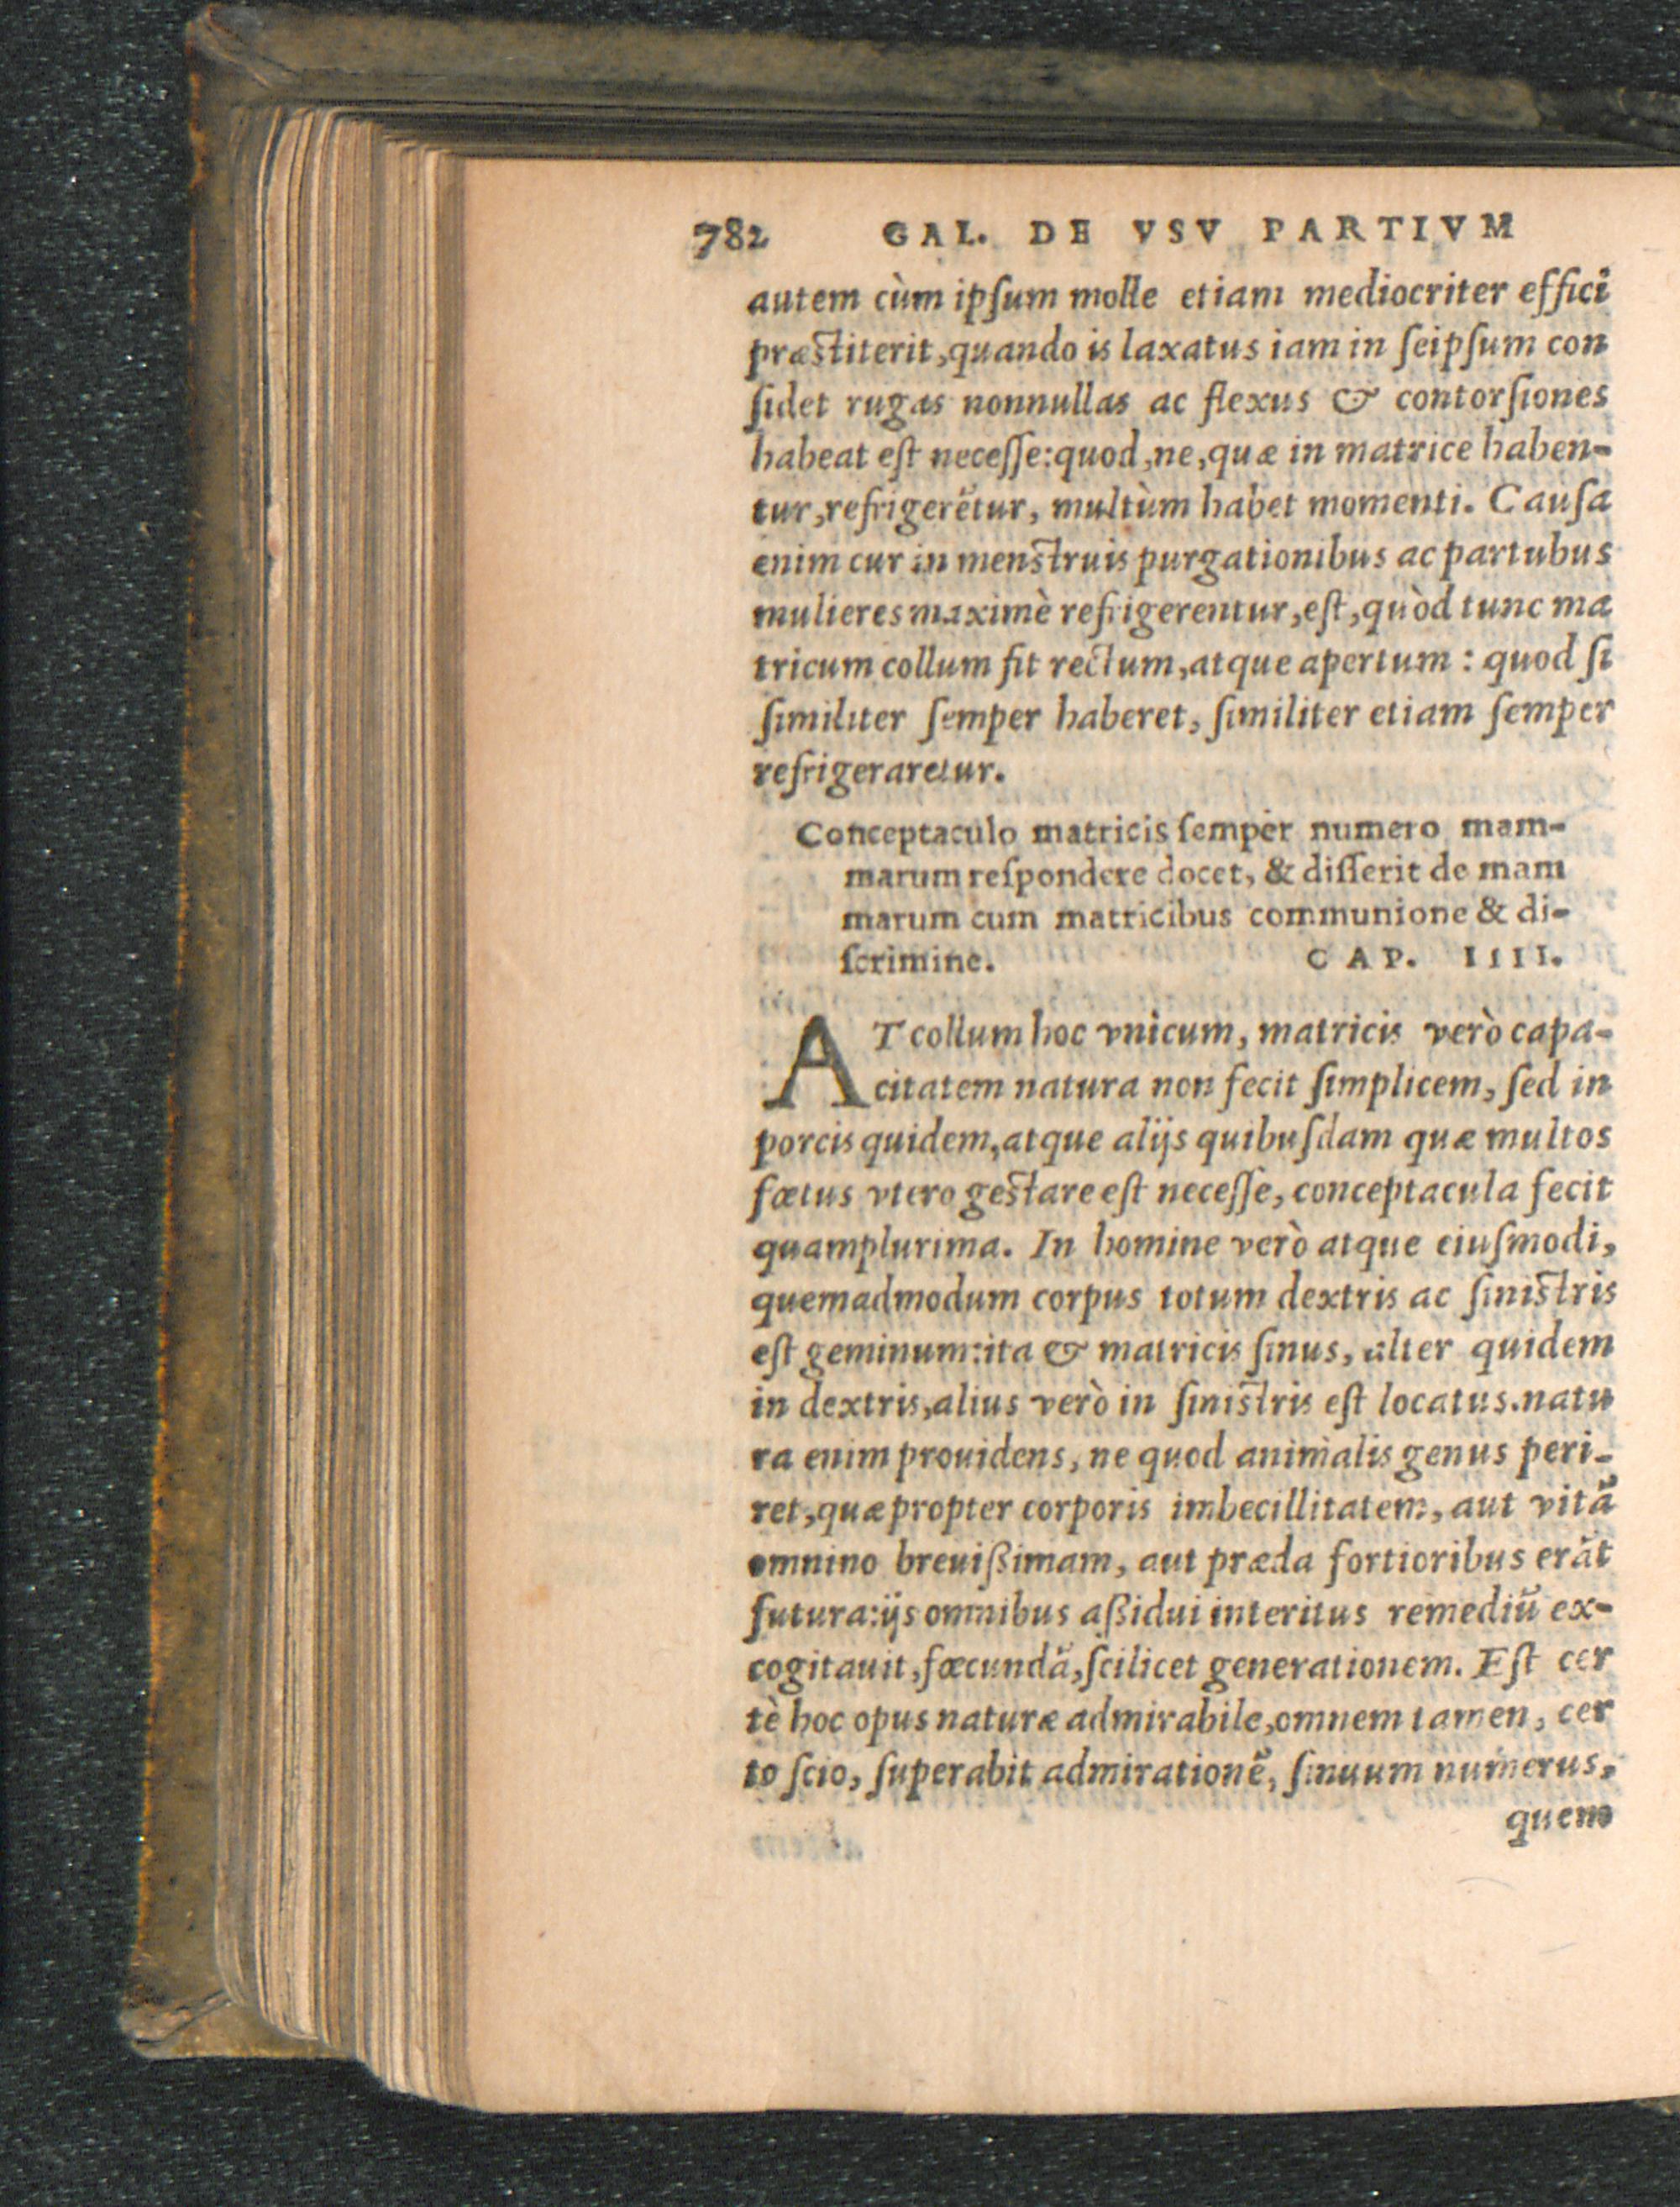 782 GAL. DE VSV PARTIVM
autem cùm ipſum molle etiam mediocriter effici
præſtiterit,quando is laxatus iam in ſeipſum con
ſidet rugas nonnullas ac flexus & contorſiones
habeat eſt neceſſe:quod,ne,quæ in matrice haben-
tur,refrigerẽtur, multùm habet momenti. Cauſa
enim cur in menſtruis purgationibus ac partubus
mulieres maximè refrigerentur,eſt,quòd tunc ma
tricum collum fit rectum,atque apertum : quod ſi
ſimiliter ſemper haberet, ſimiliter etiam ſemper
refrigeraretur.
Conceptaculo matricis ſemper numero mam-
marum reſpondere docet, & diſſerit de mam
marum cum matricibus communione & di-
ſcrimine. CAP. IIII.
AT collum hoc vnicum, matricis verò capa-
citatem natura non fecit ſimplicem, ſed in
porcis quidem,atque alijs quibuſdam quæ multos
fœtus vtero geſtare eſt neceſſe, conceptacula fecit
quamplurima. In homine verò atque eiuſmodi,
quemadmodum corpus totum dextris ac ſiniſtris
eſt geminum:ita & matricis ſinus, alter quidem
in dextris,alius verò in ſiniſtris eſt locatus.natu
ra enim prouidens, ne quod animalis genus peri-
ret,quæ propter corporis imbecillitatem, aut vitã
omnino breuißimam, aut præda fortioribus erãt
futura:ijs omnibus aßidui interitus remediũ ex-
cogitauit,fœcundã,ſcilicet generationem. Eſt cer
tè hoc opus naturæ admirabile,omnem tamen, cer
to ſcio, ſuperabit admirationẽ, ſinuum numerus,
quem